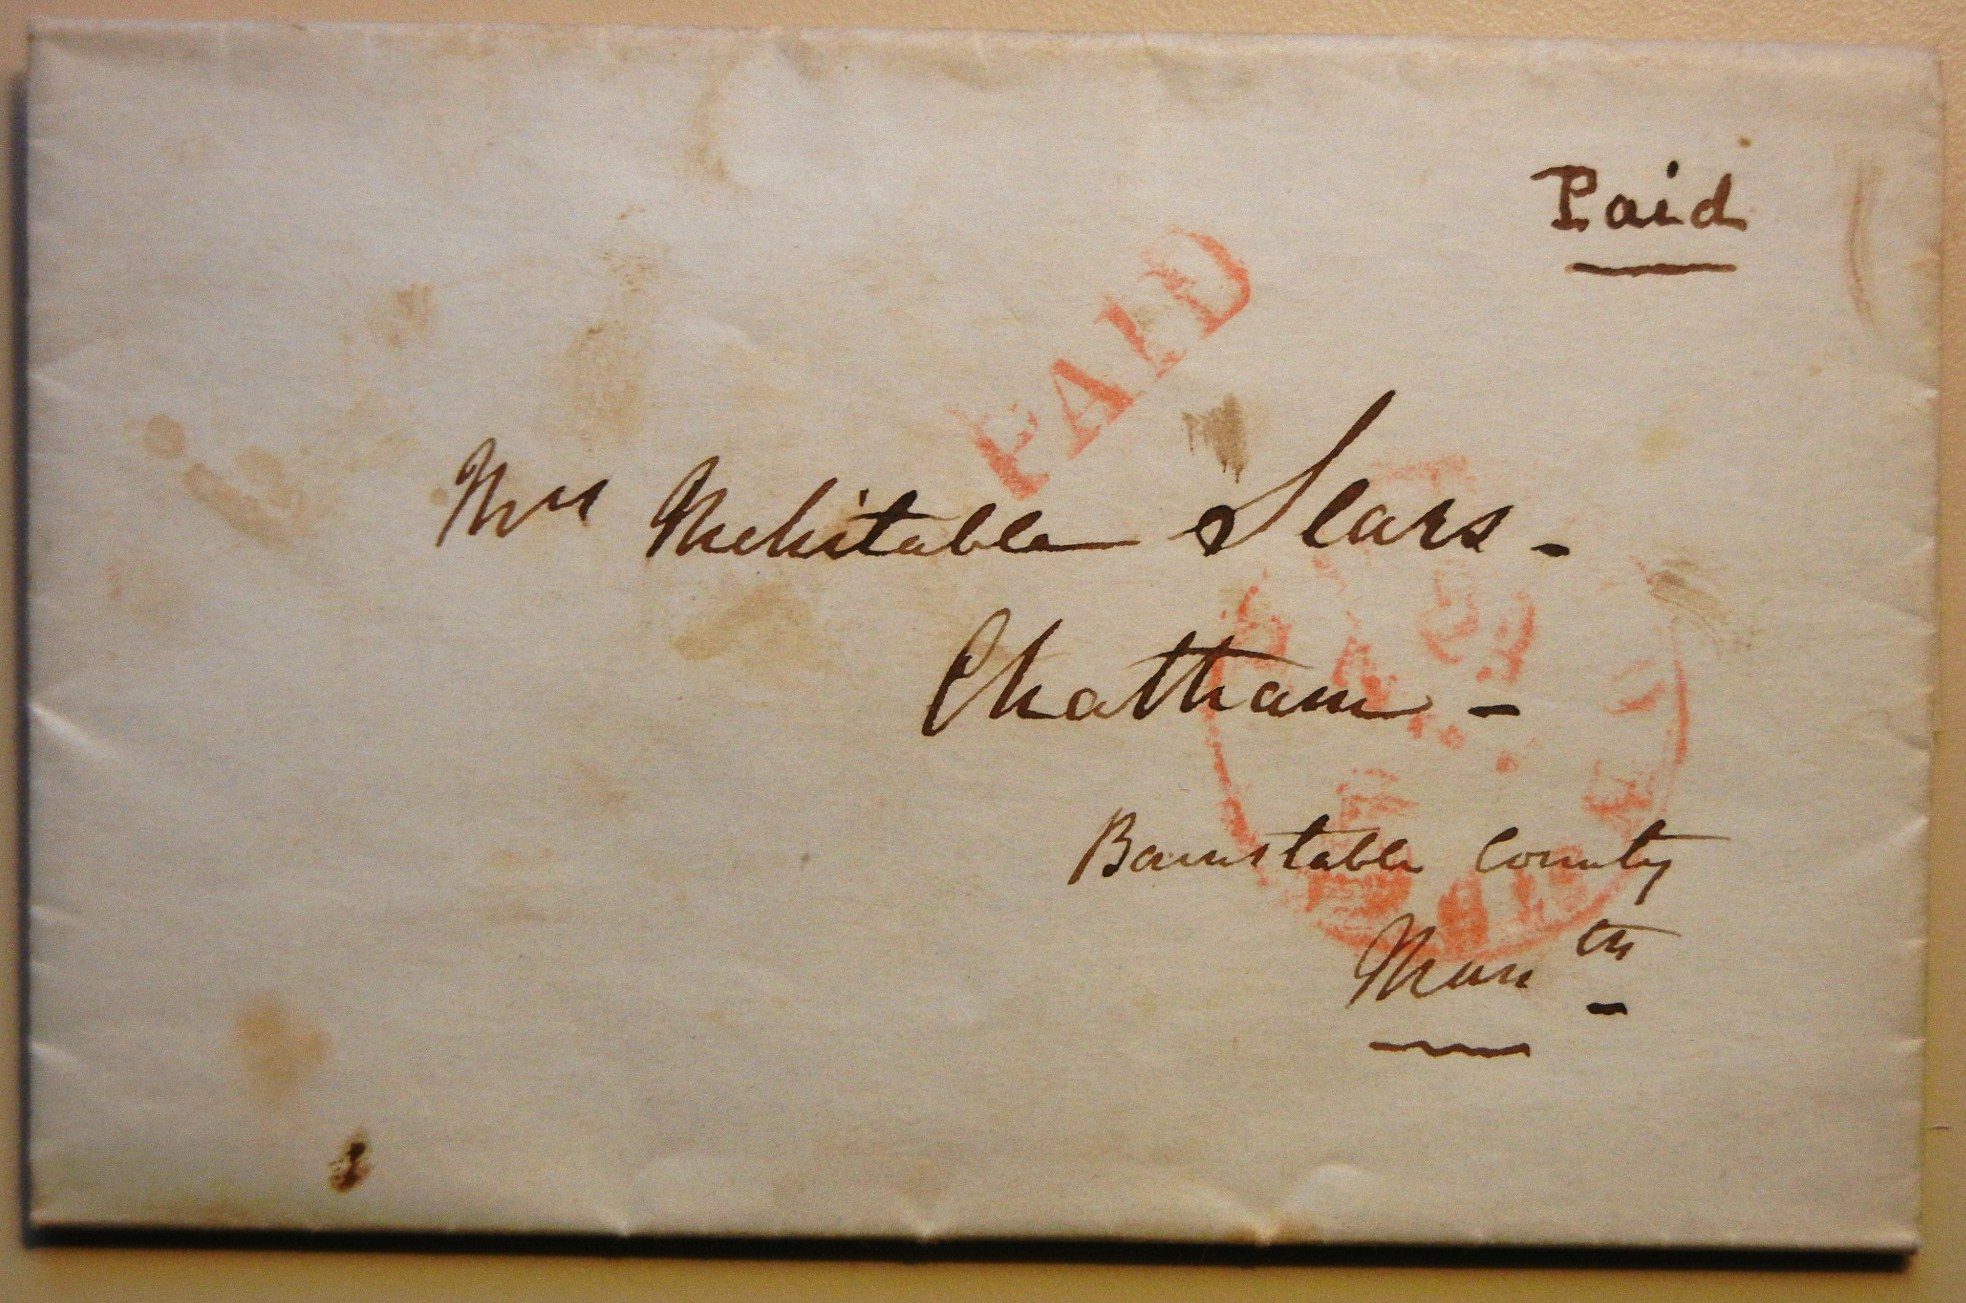 Paid
PAID
Mrs Mehitable Sears -
Chatham -
Barnstable County
Massts